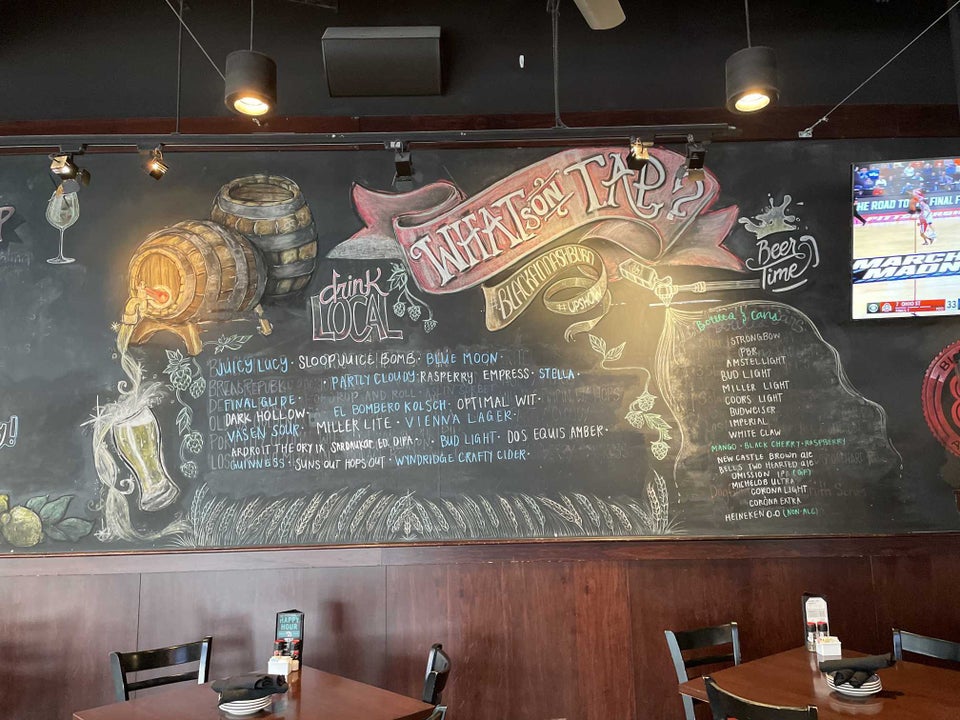 WHAT'S ON TAP?
#BLACKFINNASHBURN
#UPSHOW
drink
LOCAL
Beer
Time
JUICY LUCY · SLOOP JUICE BOMB · BLUE MOON ·
PARTLY CLOUDY · RASPERRY EMPRESS · STELLA ·
FINAL GLIDE ·
DARK HOLLOW · EL BOMBERO KOLSCH · OPTIMAL WIT ·
VASEN SOUR · MILLER LITE · VIENNA LAGER ·
ARDROIT THEORY IX SARDAUKAR ED. DIPA · BUD LIGHT · DOS EQUIS AMBER ·
GUINNESS · SUNS OUT HOPS OUT · WYNDRIDGE CRAFTY CIDER ·
Bottles & Cans
STRONGBOW
PBR
AMSTEL LIGHT
BUD LIGHT
MILLER LIGHT
COORS LIGHT
BUDWEISER
IMPERIAL
WHITE CLAW
MANGO · BLACK CHERRY · RASPBERRY
NEW CASTLE BROWN ALE
BELLS TWO HEARTED ALE
OMISSION IPA (GF)
MICHELOB ULTRA
CORONA LIGHT
CORONA EXTRA
HEINEKEN 0.0 (NON-ALC)
THE ROAD TO THE FINAL F
MARCH
MADN
7 OHIO ST 33
HAPPY
HOUR